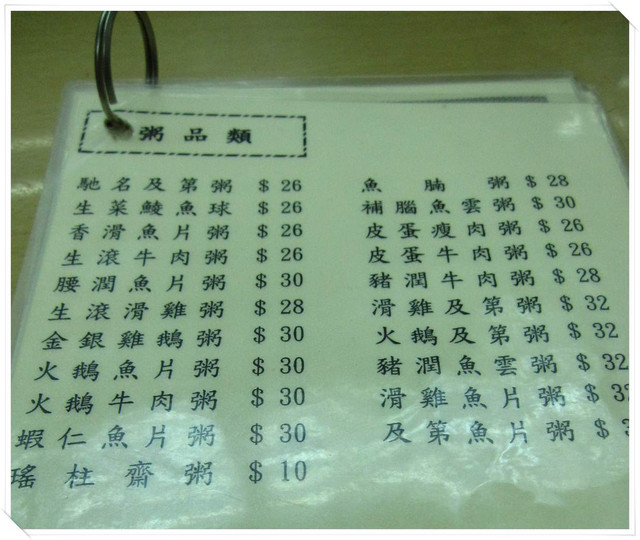 粥品類
馳名及第粥 $ 26
生菜鯪魚球 $ 26
香滑魚片粥 $ 26
生滾牛肉粥 $ 26
腰潤魚片粥 $ 30
生滾滑雞粥 $ 28
金銀雞鵝粥 $ 30
火鵝魚片粥 $ 30
火鵝牛肉粥 $ 30
蝦仁魚片粥 $ 30
瑤柱齋粥 $ 10
魚腩粥 $ 28
補腦魚雲粥 $ 30
皮蛋瘦肉粥 $ 26
皮蛋牛肉粥 $ 26
豬潤牛肉粥 $ 28
滑雞及第粥 $ 32
火鵝及第粥 $ 32
豬潤魚雲粥 $ 32
滑雞魚片粥 $
及第魚片粥 $